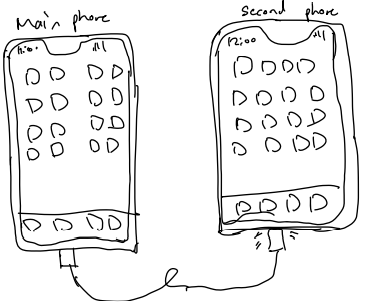 Main phone
Second phone
12:00